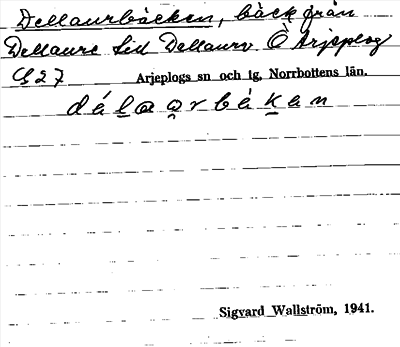 Dellaurbäcken, bäck från
Dellaure till Dellaurn Ö Arjeplog
C27
Arjeplogs sn och tg, Norrbottens län.
délaarbäkan
Sigvard Wallström, 1941.